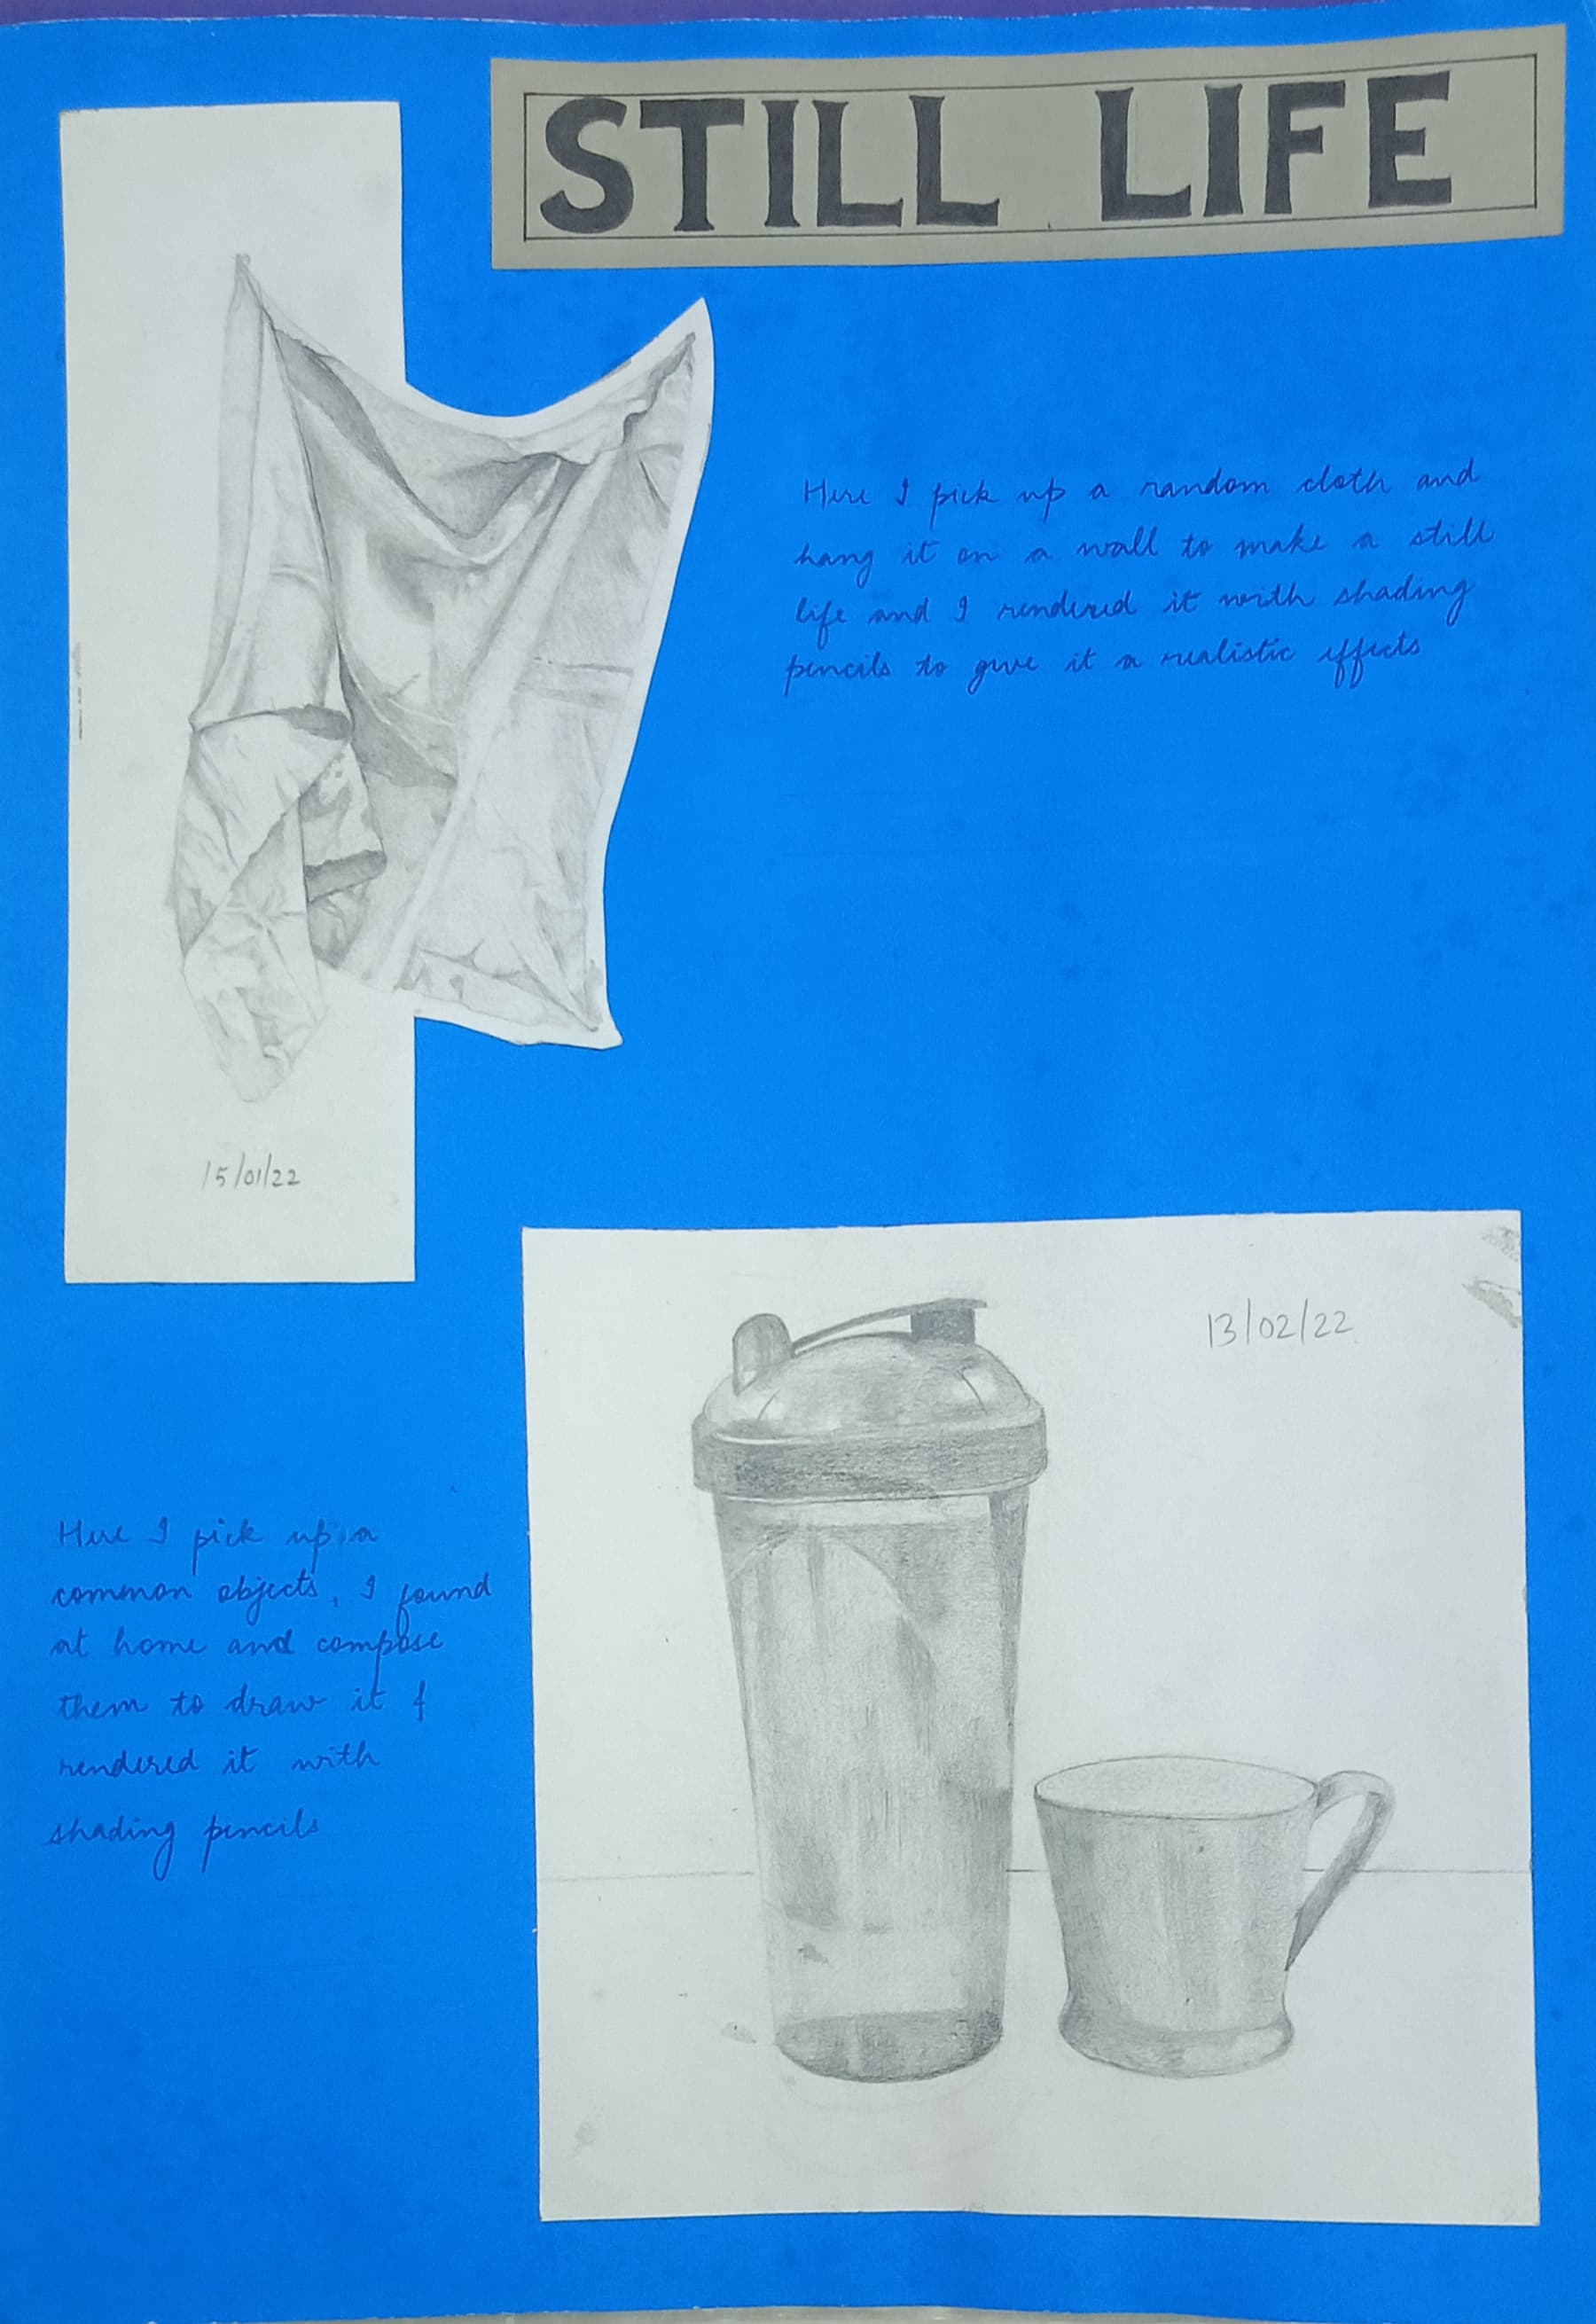 STILL LIFE
Here I pick up a random cloth and
hang it on a wall to make a still
life and I rendered it with shading
pencils to give it a realistic effects
15/01/22
13/02/22
Here I pick up a
common objects, I found
at home and compose
them to draw it &
rendered it with
shading pencils